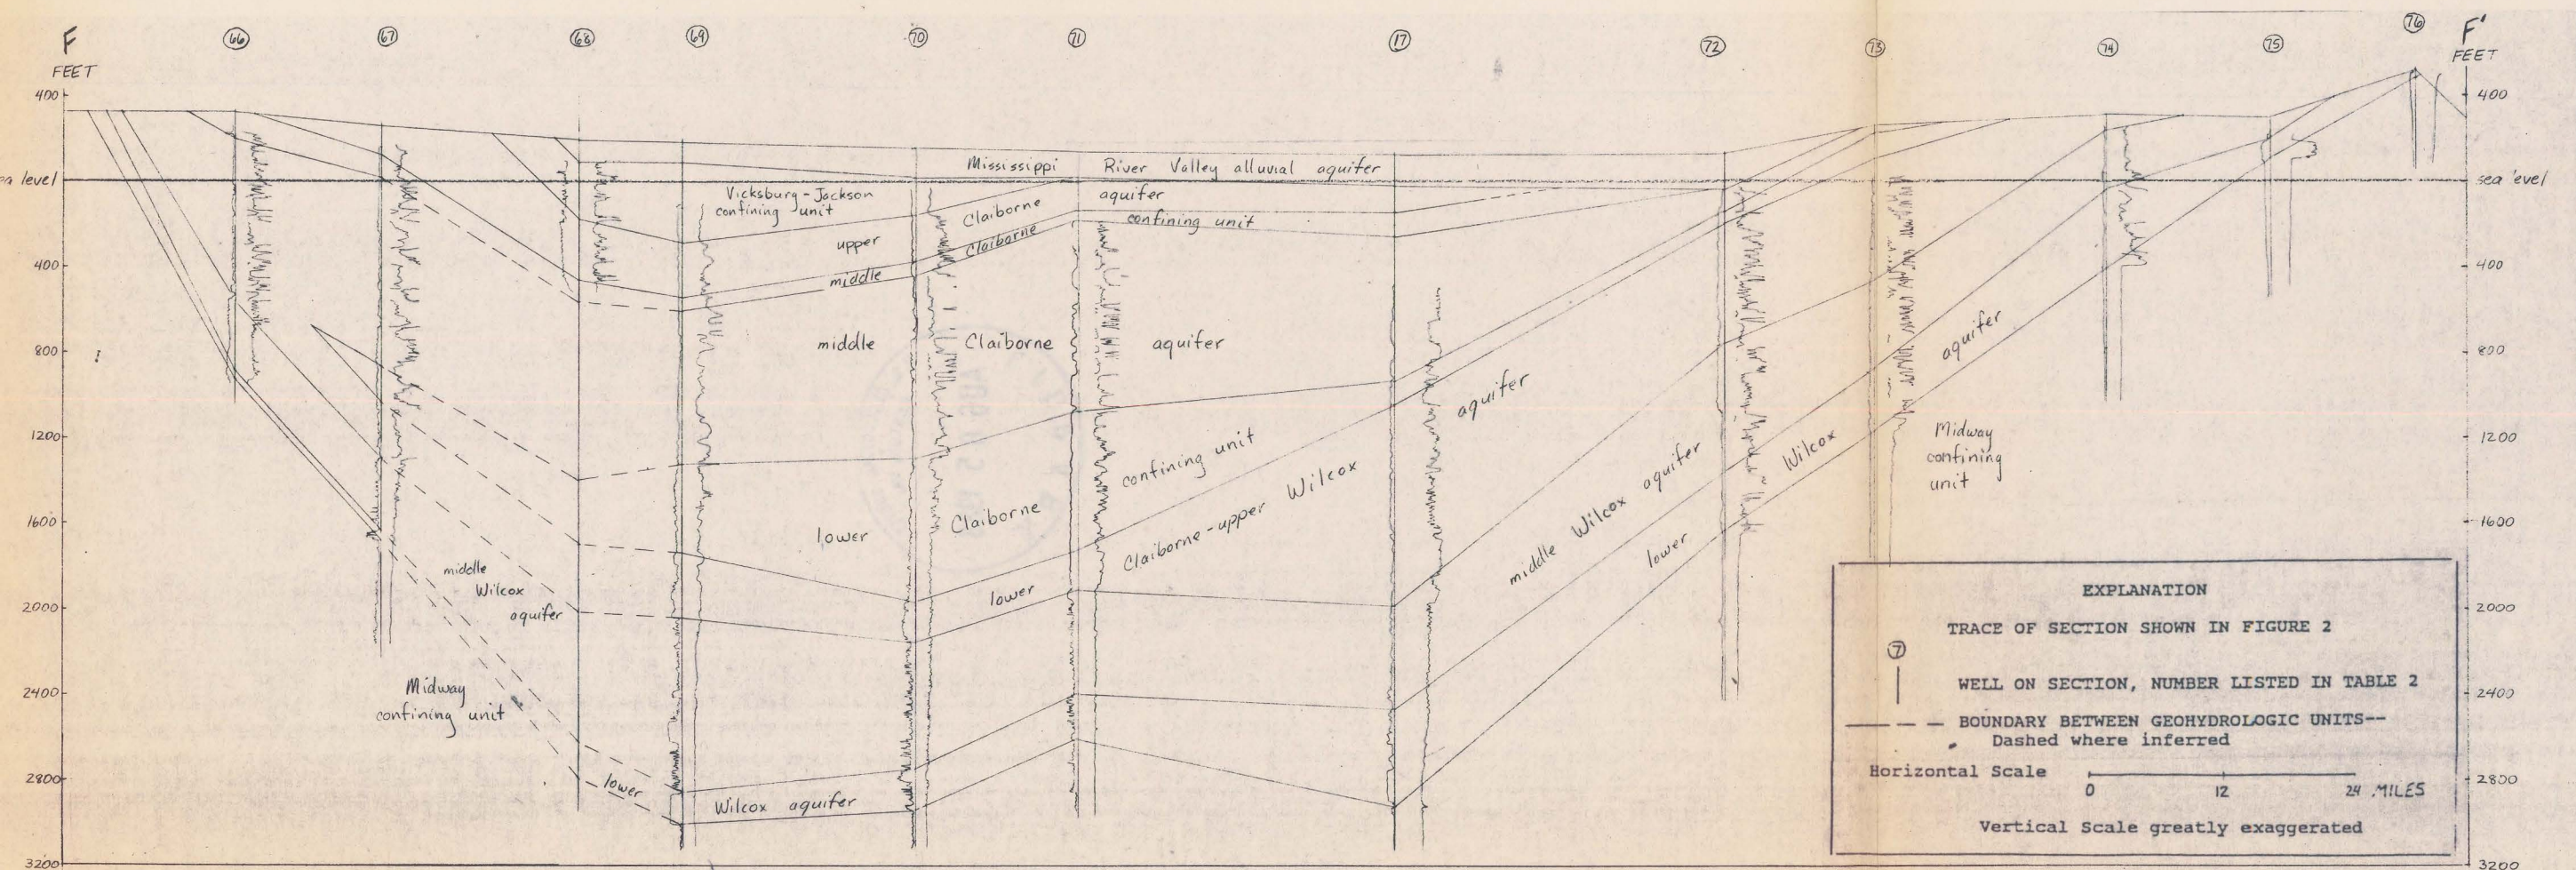 F
FEET
66
67
68
69
70
71
17
72
73
74
75
76
F'
FEET
400
sea level
400
800
1200
1600
2000
2400
2800
3200
400
sea level
400
800
1200
1600
2000
2400
2800
3200
Mississippi River Valley alluvial aquifer
Vicksburg-Jackson
confining unit
upper Claiborne aquifer
middle Claiborne confining unit
middle Claiborne aquifer
lower Claiborne confining unit
lower Claiborne-upper Wilcox aquifer
middle Wilcox aquifer
lower Wilcox aquifer
middle
Wilcox
aquifer
Midway
confining unit
lower Wilcox aquifer
Midway
confining
unit
EXPLANATION
TRACE OF SECTION SHOWN IN FIGURE 2
7
WELL ON SECTION, NUMBER LISTED IN TABLE 2
BOUNDARY BETWEEN GEOHYDROLOGIC UNITS--
Dashed where inferred
Horizontal Scale
0 12 24 MILES
Vertical Scale greatly exaggerated